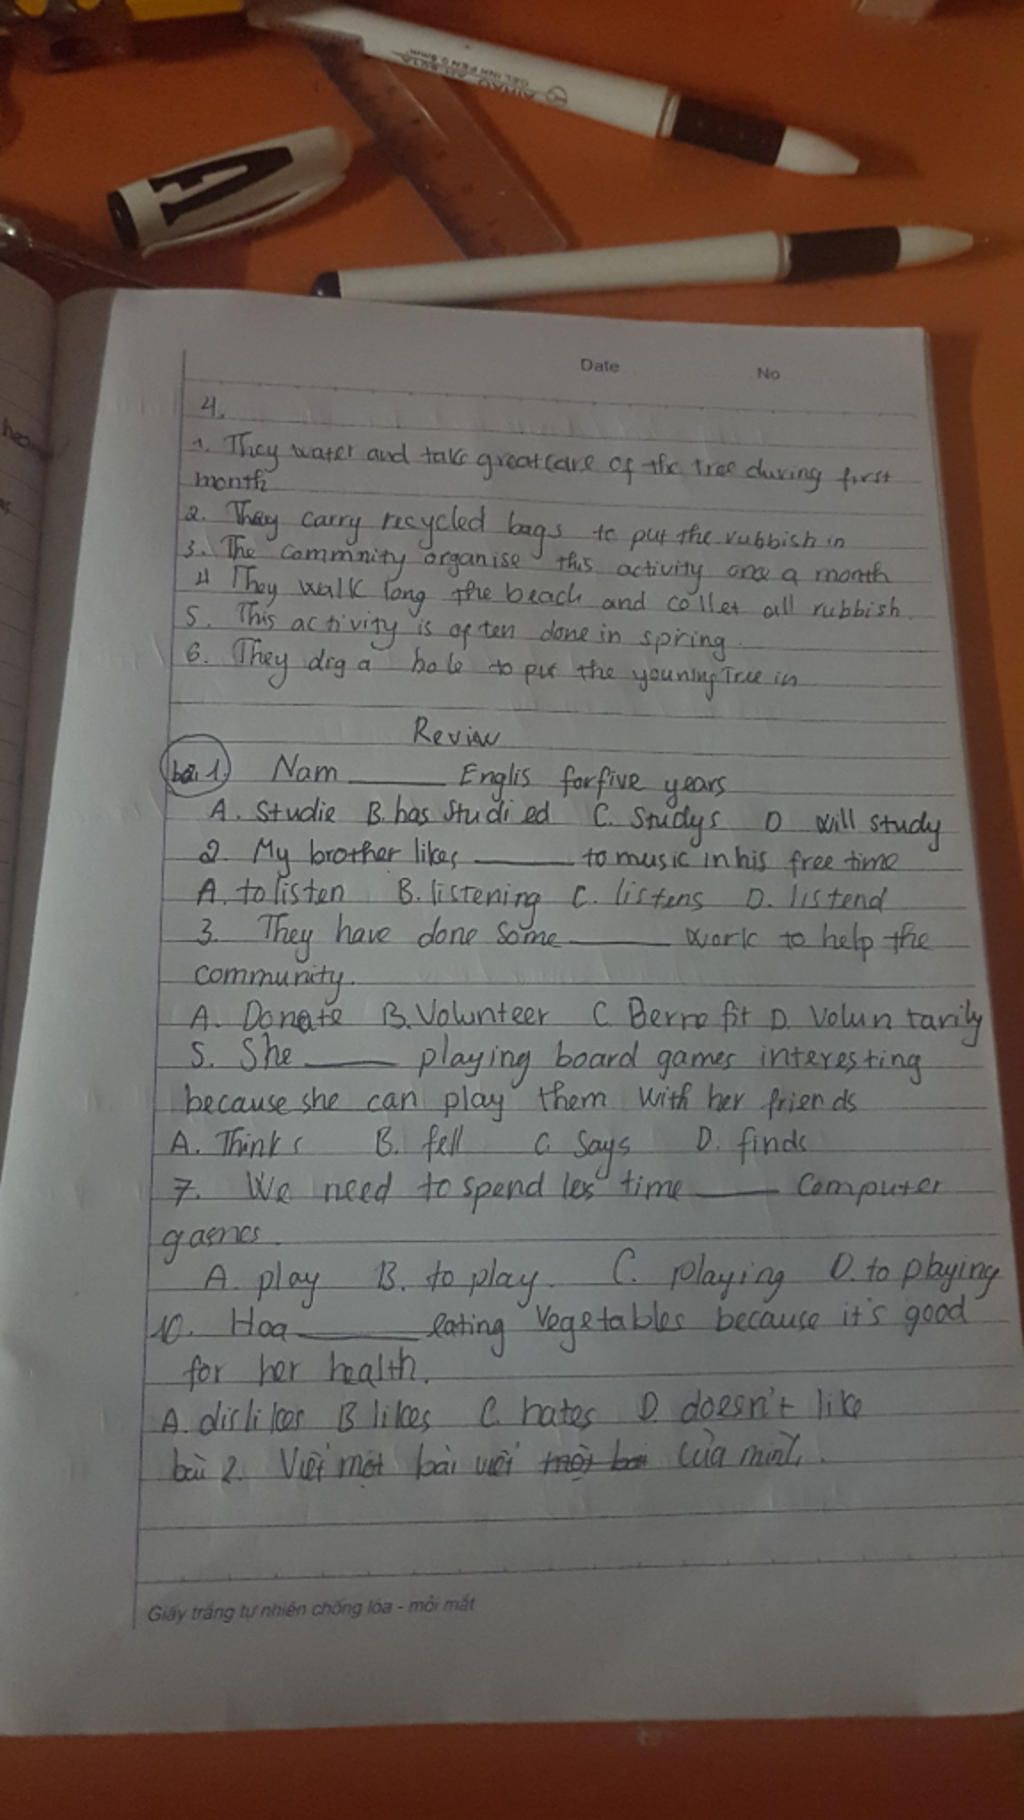 GEL INK PEN 0.5mm
Date No
4.
1. They water and take great care of the tree during first
month
2. They carry recycled bags to put the rubbish in
3. The commnity organise this activity once a month
4 They walk long the beach and collet all rubbish.
5. This activity is often done in spring.
6. They dig a hole to put the youning Tree in
Review
bài 1. Nam ______ Englis for five years
A. Studie B. has studied C. Studys D will study
2. My brother likes ______ to music in his free time
A. to listen B. listening C. listens D. listend
3. They have done some ______ work to help the
community.
A. Donate B. Volunteer C. Bernefit D. Voluntarily
5. She ______ playing board games interesting
because she can play them with her friends
A. Thinks B. fell C. Says D. finds
7. We need to spend les time ______ Computer
games.
A. play B. to play. C. playing D. to playing
10. Hoa ______ eating Vegetables because it's good
for her health.
A. dislikes B likes C. hates D. doesn't like
bài 2. Viết một bài viết một bài của mình.
Giấy trắng tự nhiên chống lóa - mỏi mắt